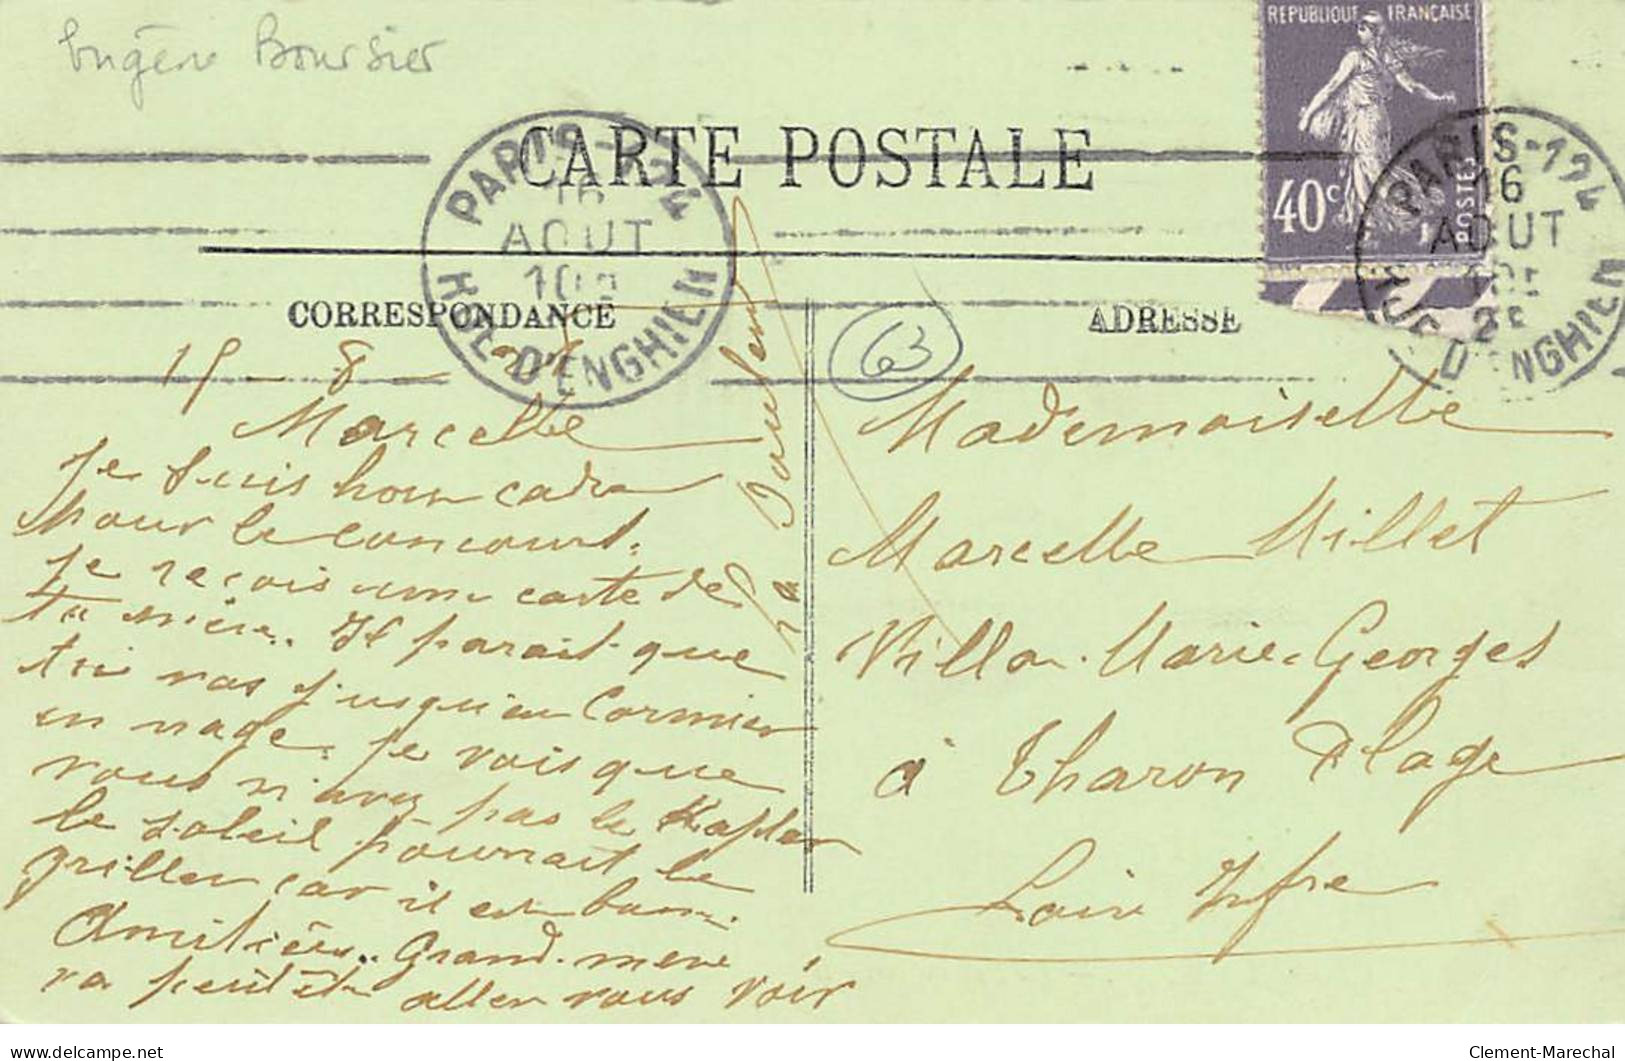 Eugène Boursier
CARTE POSTALE
REPUBLIQUE FRANÇAISE
40c
POSTES
PARIS-114
16
AOUT
RUE D'ENGHIEN
PARIS-114
16
AOUT
RUE D'ENGHIEN
CORRESPONDANCE
ADRESSE
63
15 - 8 -
Marcelle
Je suis hors cadre
pour le concours.
Je reçois une carte de
ta mère. Il parait que
tu vas jusqu'au Cormier
en nage. Je vois que
vous n'avez pas le
le soleil pourrait le
griller car il est
Amitiés. Grand-mère
va peut êt aller vous voir
Mademoiselle
Marcelle Millet
Villa Marie-Georges
à Tharon Plage
Loire Infre
Clement-Marechal
delcampe.net